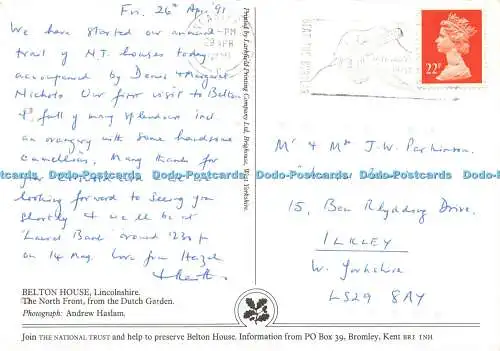 Fri. 26th Apr '91
We have started our annual
trail of N.T. houses today
accompanied by Denis & Margaret
Nichols. Our first visit to Belton
full of many splendours incl
an orangery with some handsome
Camellias. Many thanks for
your
looking forward to seeing you
shortly & we'll be at
'Laurel Bank' around 12.30 p
on 14 May. Love from Hazel
& Keith
BELTON HOUSE, Lincolnshire.
The North Front, from the Dutch Garden.
Photograph: Andrew Haslam.
Printed by Larkfield Printing Company Ltd, Brighouse, West Yorkshire.
-PM
1991
22P
Mr & Mrs J.W. Parkinson
15, Ben Rhydding Drive,
ILKLEY
W. Yorkshire
LS29 8AY
Join THE NATIONAL TRUST and help to preserve Belton House. Information from PO Box 39, Bromley, Kent BR1 1NH
Dodo-Postcards Dodo-Postcards Dodo-Postcards Dodo-Postcards Dodo-Postcards